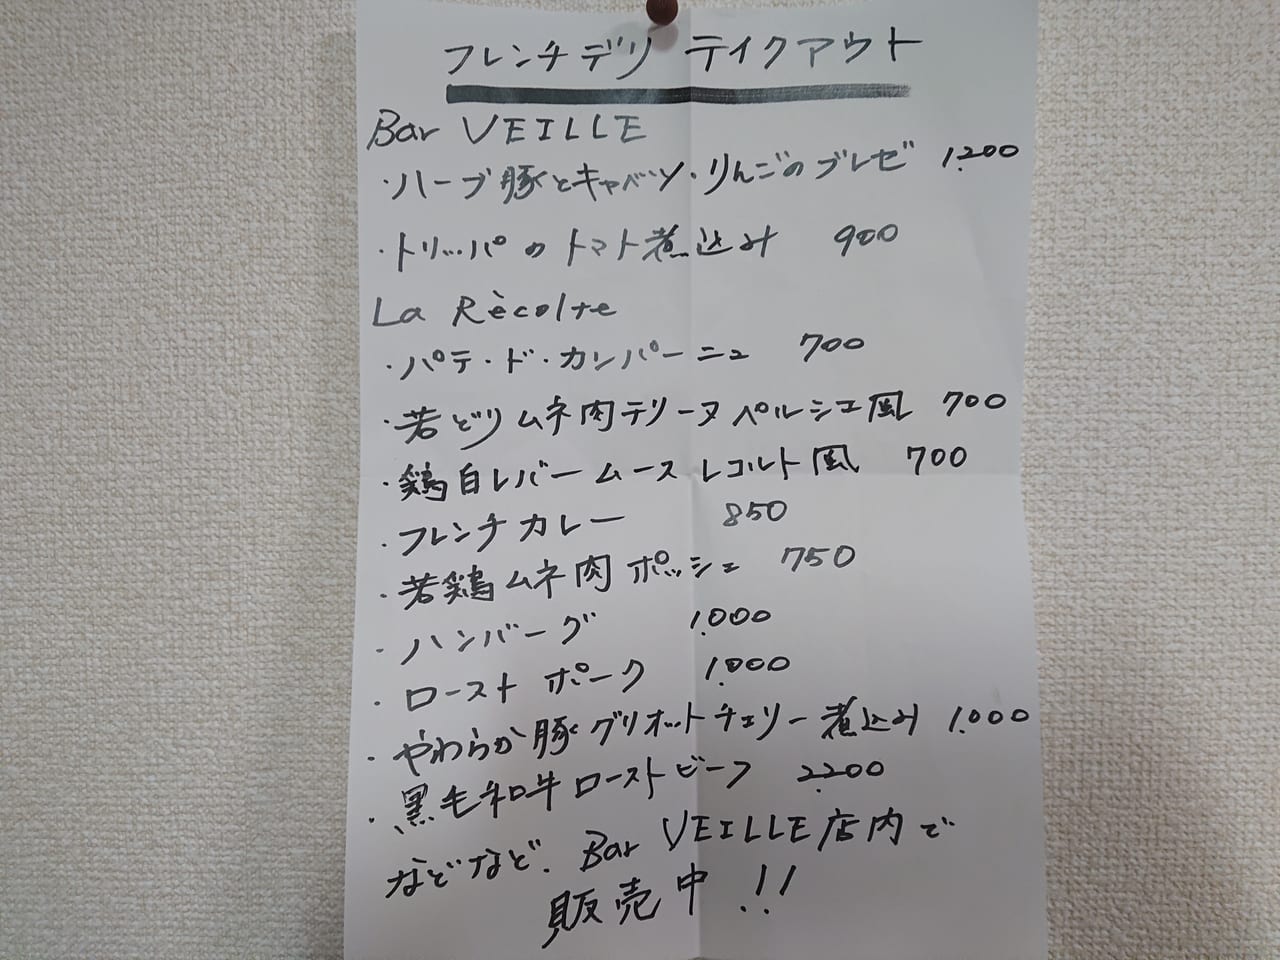 フレンチデリ テイクアウト
Bar VEILLE
・ハーブ豚とキャベツ・りんごのブレゼ 1,200
・トリッパのトマト煮込み 900
La Rècolte
・パテ・ド・カンパーニュ 700
・若どりムネ肉テリーヌペルシエ風 700
・鶏白レバームースレコルト風 700
・フレンチカレー 850
・若鶏ムネ肉ポッシェ 750
・ハンバーグ 1,000
・ローストポーク 1,000
・やわらか豚グリオットチェリー煮込み 1,000
・黒毛和牛ローストビーフ 2,200
などなど、Bar VEILLE店内で
販売中!!